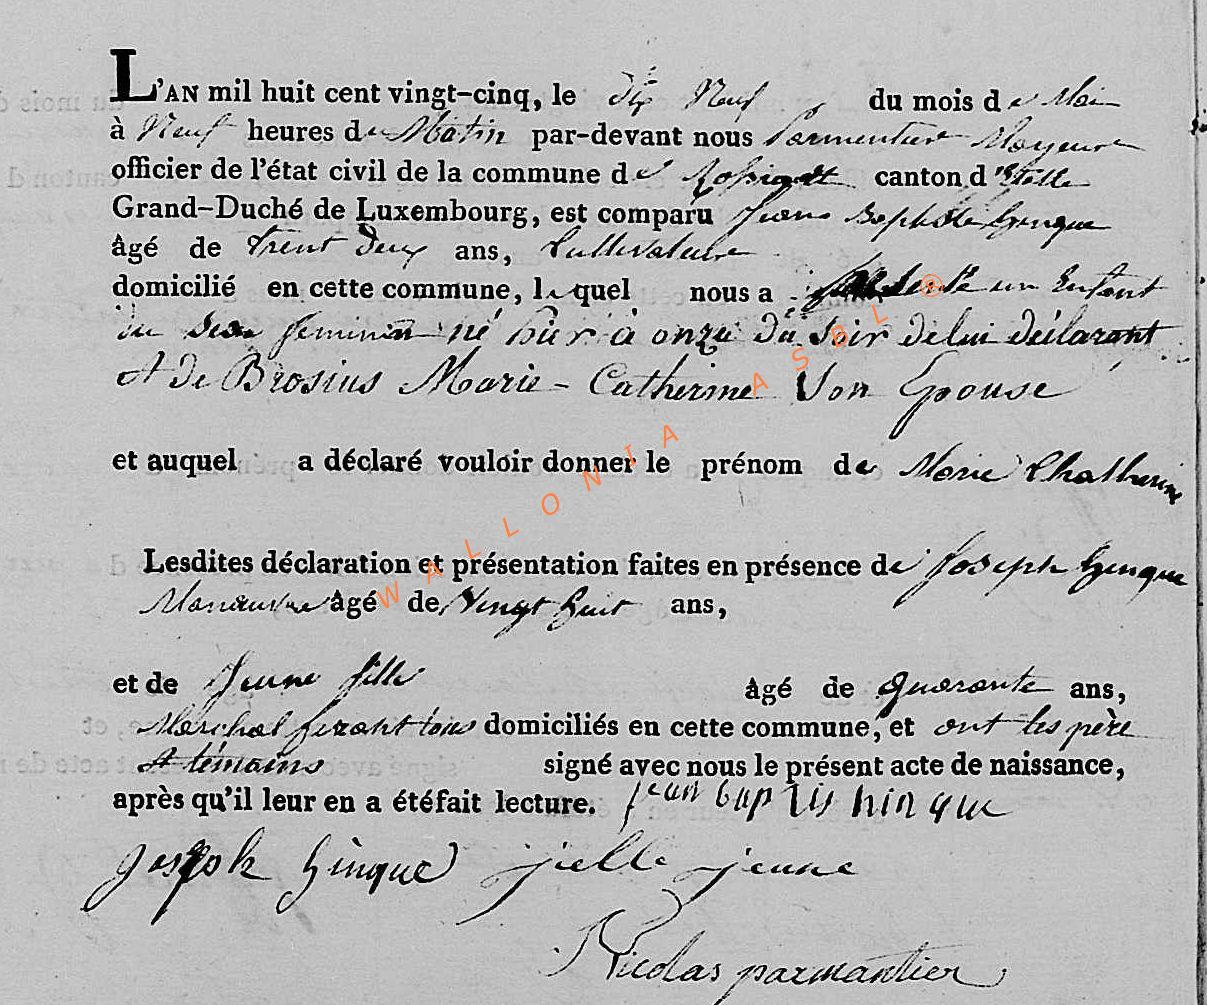 L'AN mil huit cent vingt-cinq, le dix Neuf du mois de Mai
à Neuf heures du Matin par-devant nous Parmentier Mayeur
officier de l'état civil de la commune de canton d'Etalle
Grand-Duché de Luxembourg, est comparu Jean Baptiste Ginque
âgé de trent deux ans, Cultivateur
domicilié en cette commune, lequel nous a présenté un Enfant
du Sexe feminin né hier à onze du Soir de lui déclarant
et de Brosius Marie-Catherine Son Epouse
et auquel a déclaré vouloir donner le prénom de Marie Chatherine
Lesdites déclaration et présentation faites en présence de Joseph Ginque
Manœuvre âgé de Vingt huit ans,
et de Jeune fille âgé de quarante ans,
Marchal ferant tous domiciliés en cette commune, et ont les père
et témoins signé avec nous le présent acte de naissance,
après qu'il leur en a étéfait lecture. jean baptis hinque
joseph ginque jielle jeune
Nicolas parmantier
WALLONIA ASBL ®